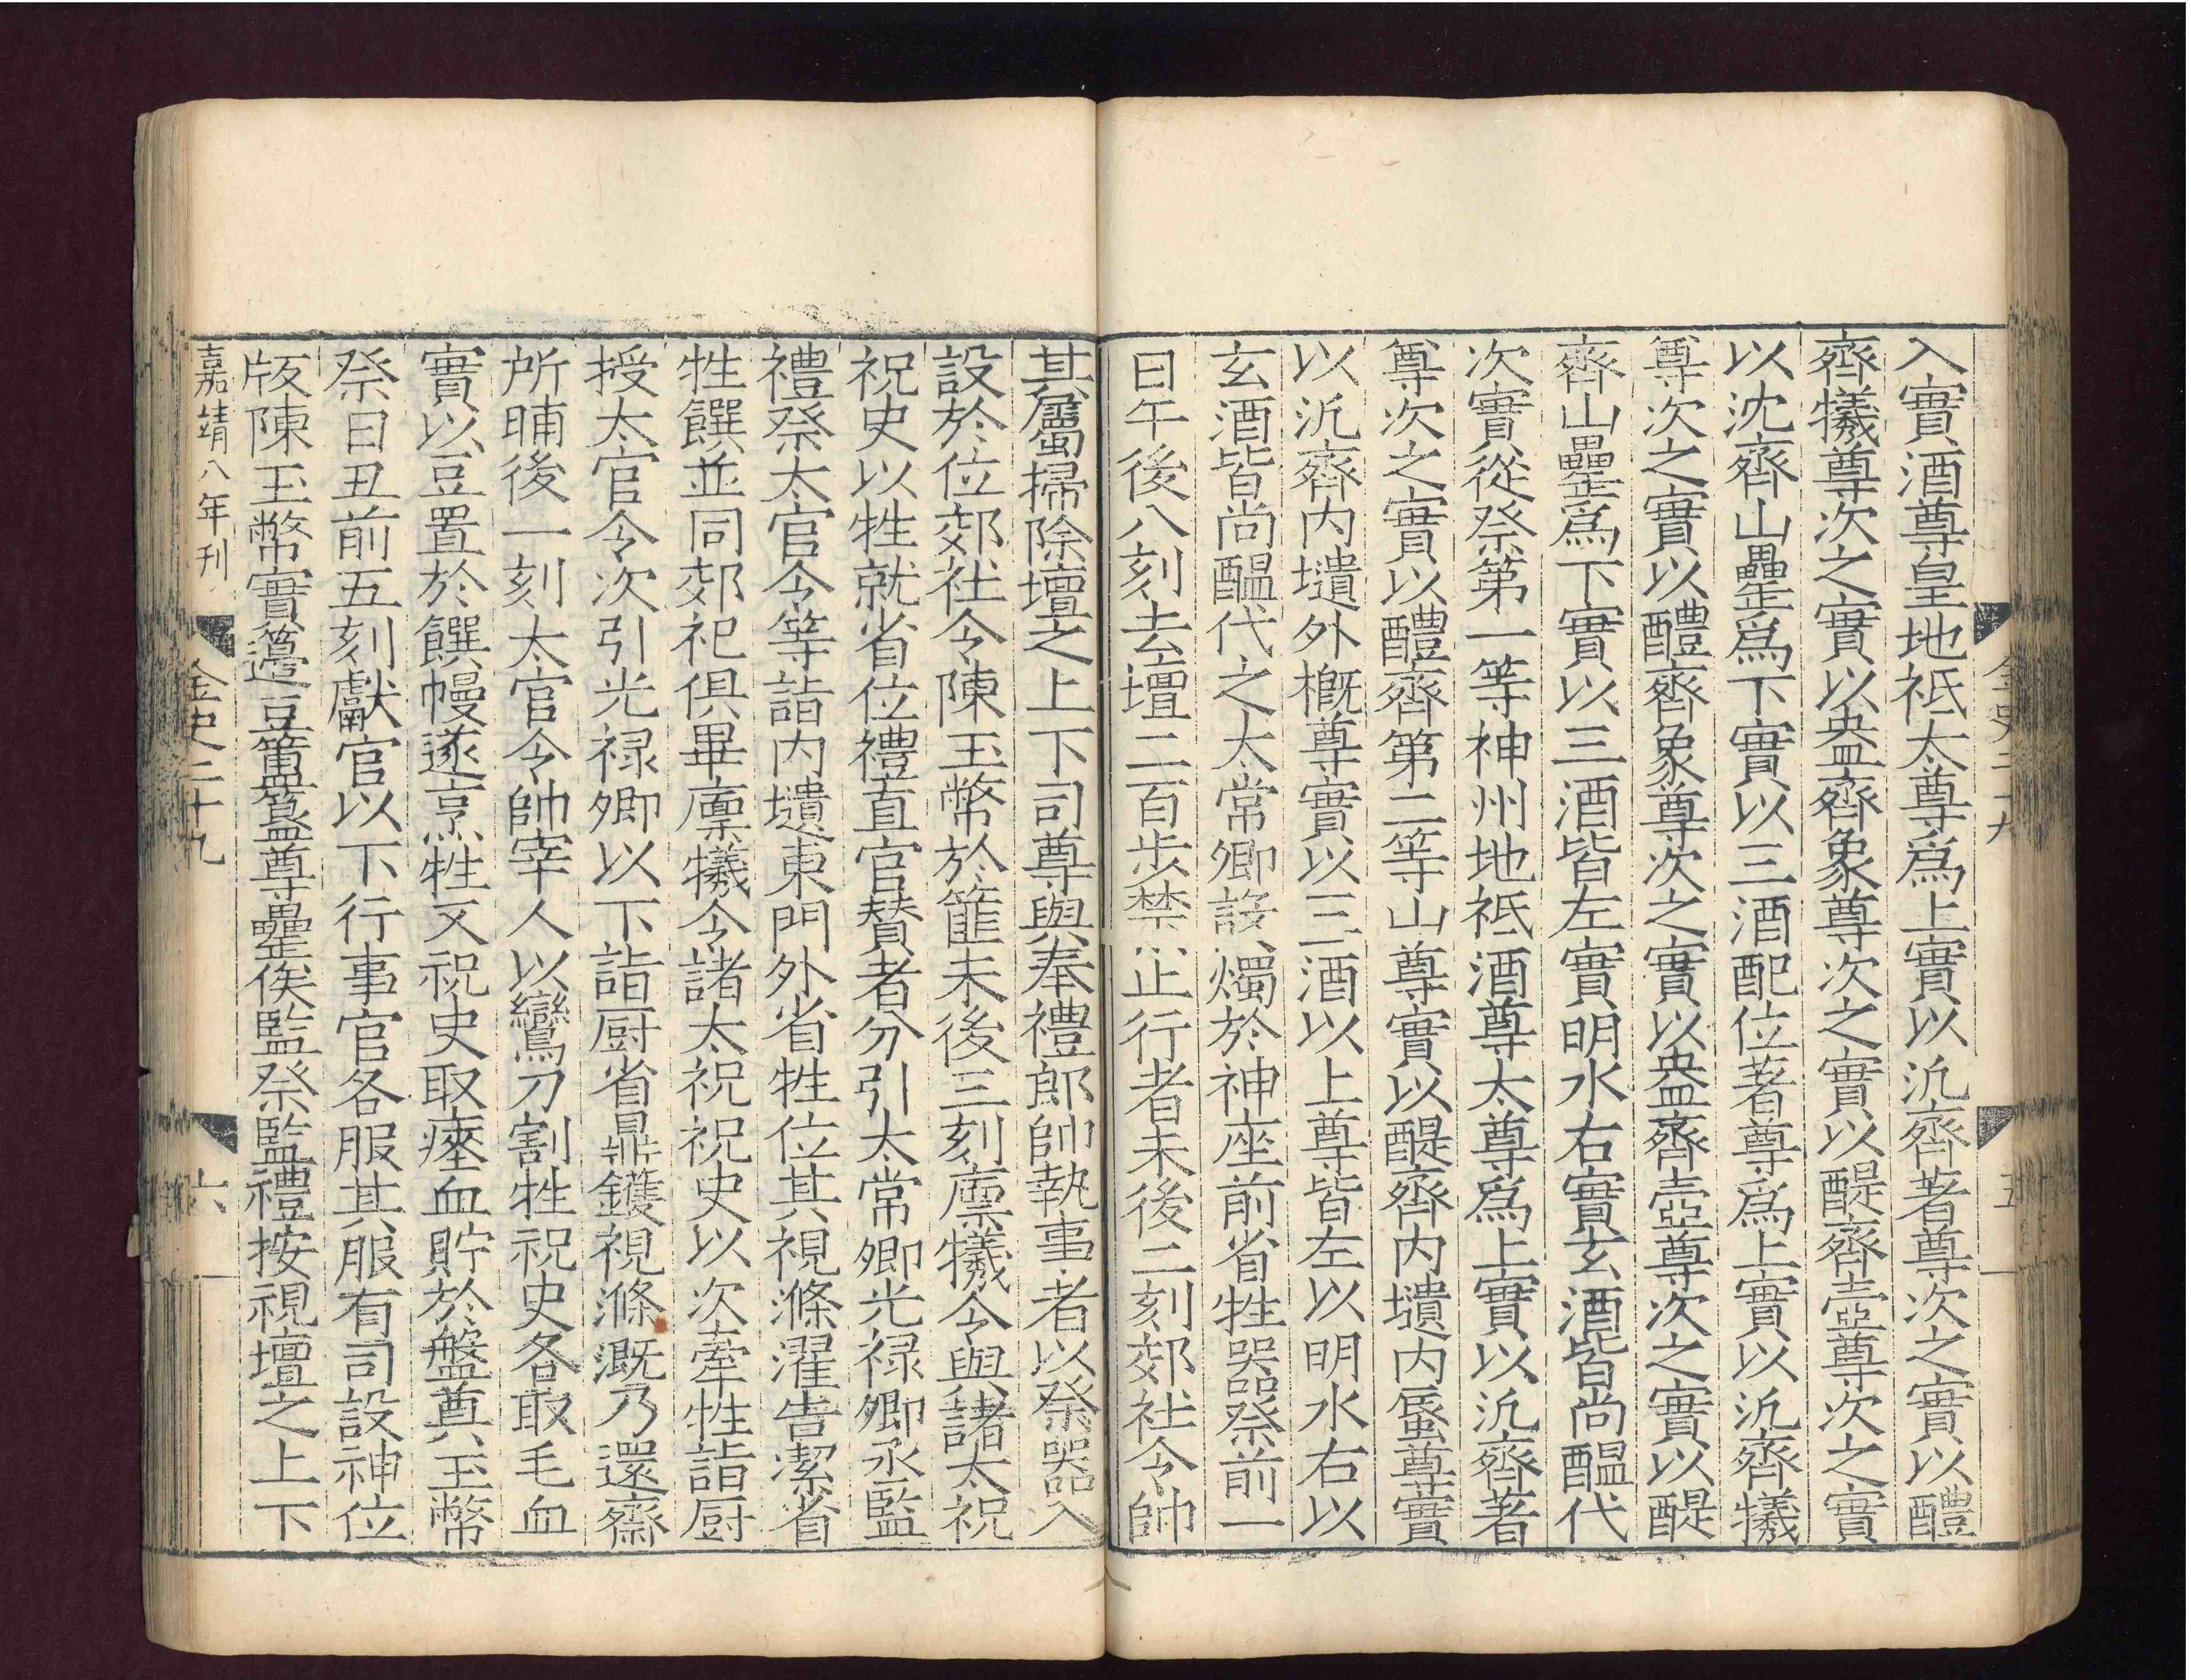 入實酒尊皇地祗太尊爲上實以汎齊著尊次之實以醴
齊犧尊次之實以盎齊象尊次之實以醍齊壺尊次之實
以沈齊山罍爲下實以三酒配位著尊爲上實以汎齊犧
尊次之實以醴齊象尊次之實以盎齊壺尊次之實以醍
齊山罍爲下實以三酒皆左實明水右實玄酒皆尚醞代
次實從祭第一等神州地祗酒尊太尊爲上實以汎齊著
尊次之實以醴齊第二等山尊實以醍齊内壝内蜃尊實
以汎齊内壝外概尊實以三酒以上尊皆左以明水右以
玄酒皆尚醞代之太常卿設燭於神座前省牲器祭前一
日午後八刻去壇二百步禁止行者未後二刻郊社令帥
其屬掃除壇之上下司尊與奉禮郎帥執事者以祭器入
設於位郊社令陳玉幣於篚未後三刻廩犧令與諸太祝
祝史以牲就省位禮直官賛者分引太常卿光禄卿丞監
禮祭太官令等詣内壝東門外省牲位其視滌濯告潔省
牲饌並同郊祀俱畢廩犧令諸太祝祝史以次牽牲詣厨
授太官令次引光禄卿以下詣厨省鼎鑊視滌溉乃還齋
所晡後一刻太官令帥宰人以鸞刀割牲祝史各取毛血
實以豆置於饌幔遂烹牲又祝史取瘞血貯於盤奠玉幣
祭日丑前五刻獻官以下行事官各服其服有司設神位
版陳玉幣實籩豆簠簋尊罍俟監祭監禮按視壇之上下
嘉靖八年刊
金史二十九
六